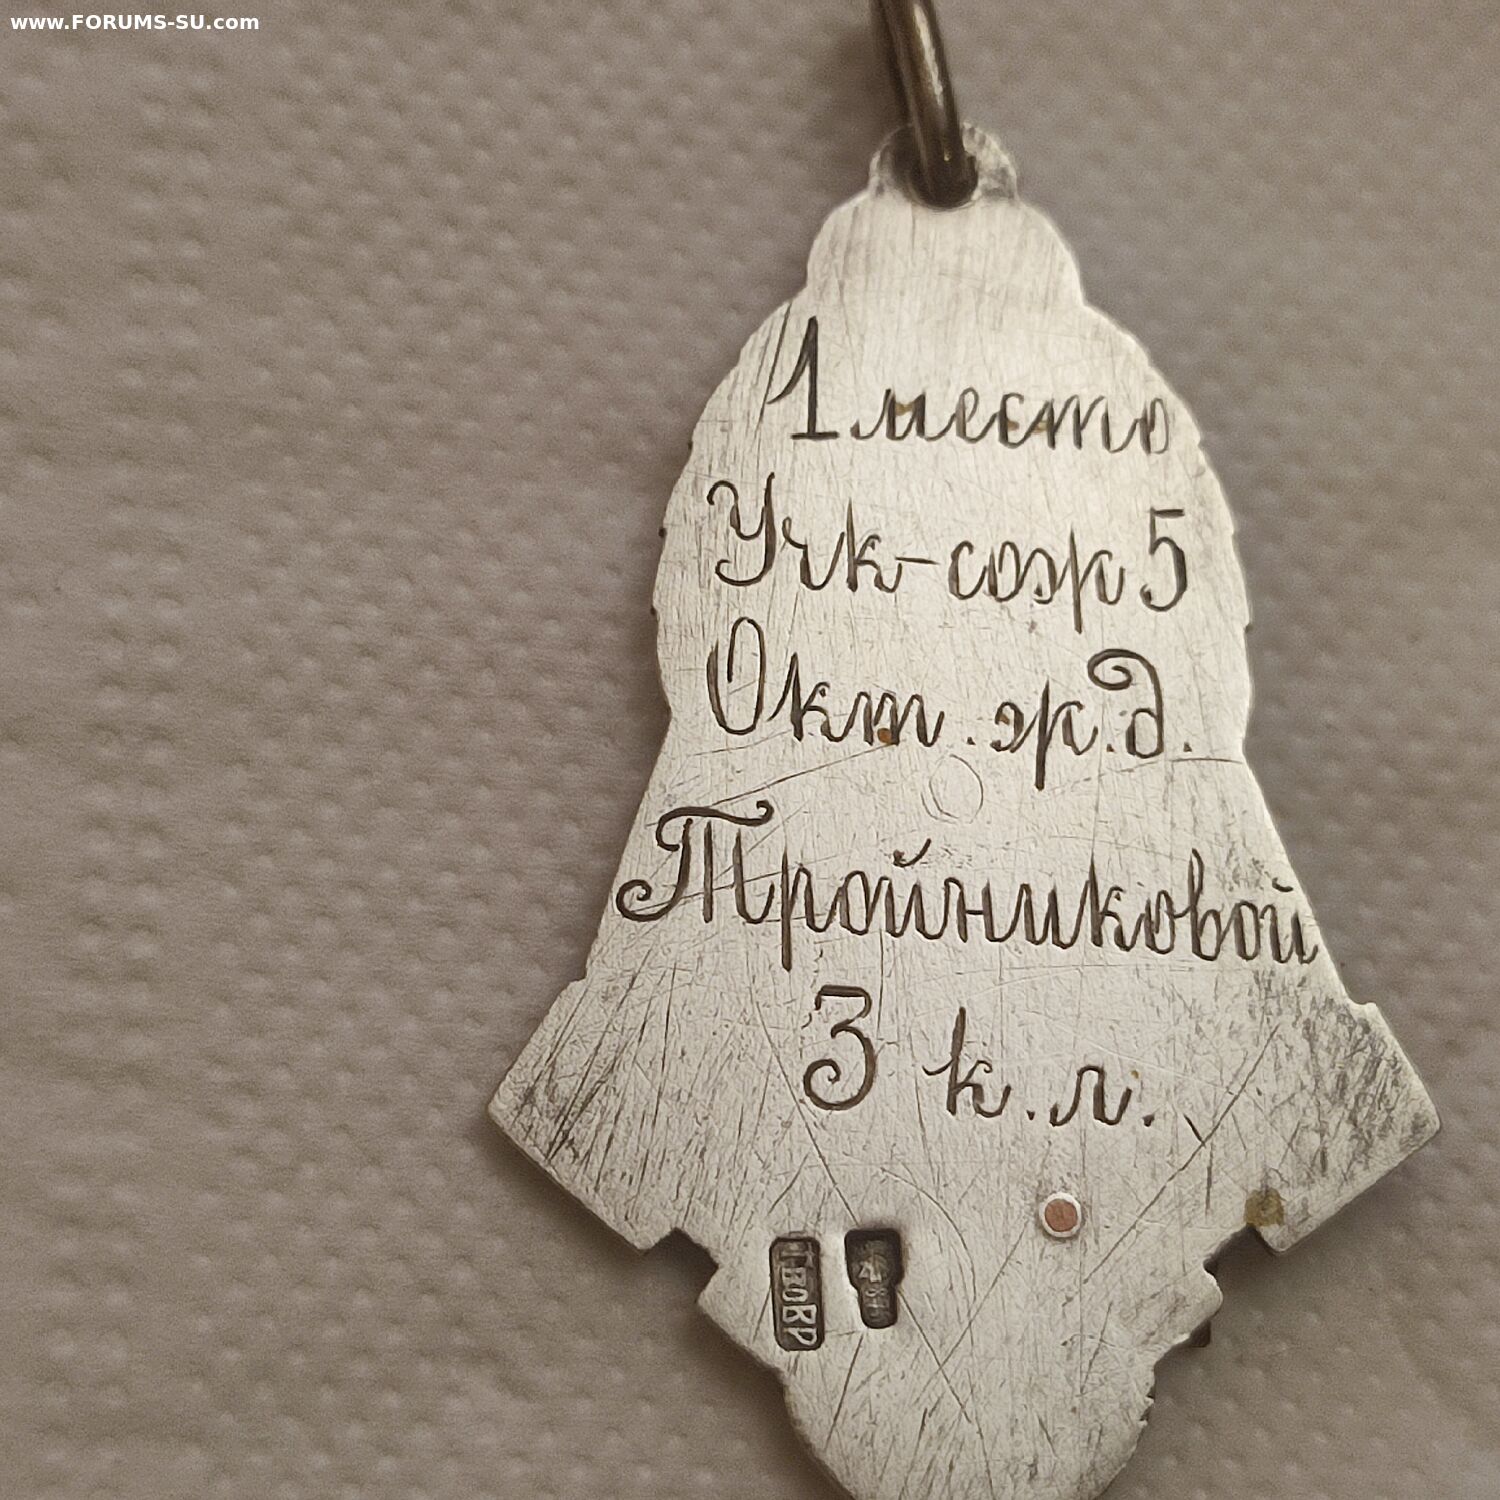 www.FORUMS-SU.com
1 место
Учк-сож 5
Окт. ж.д.
Тройниковой
3 к.л.
875